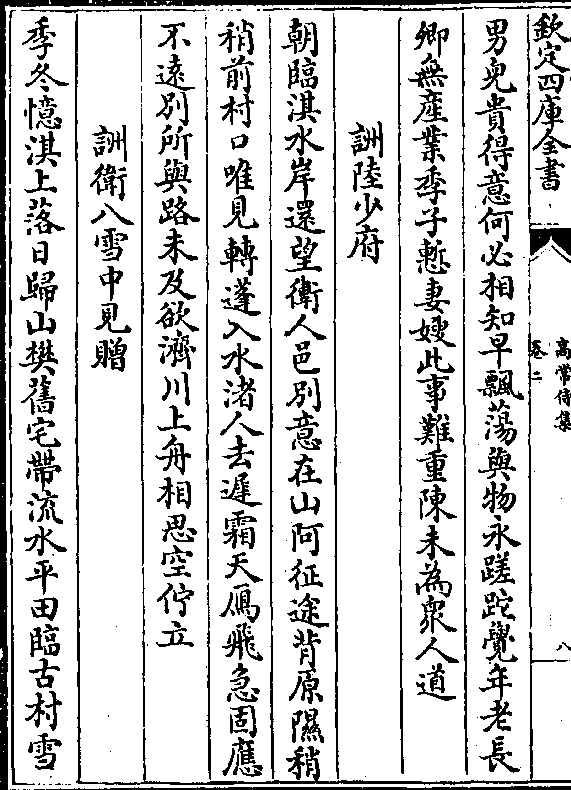 欽定四庫全書
高常侍集
卷二
八
男兒貴得意何必相知早飄蕩與物永蹉跎覺年老長
卿無產業季子慙妻嫂此事難重陳未為衆人道
詶陸少府
朝臨淇水岸還望衛人邑別意在山阿征途背原隰稍
稍前村口唯見轉蓬入水渚人去遲霜天鴈飛急固應
不遠別所與路未及欲濟川上舟相思空佇立
詶衛八雪中見贈
季冬憶淇上落日歸山樊舊宅帶流水平田臨古村雪